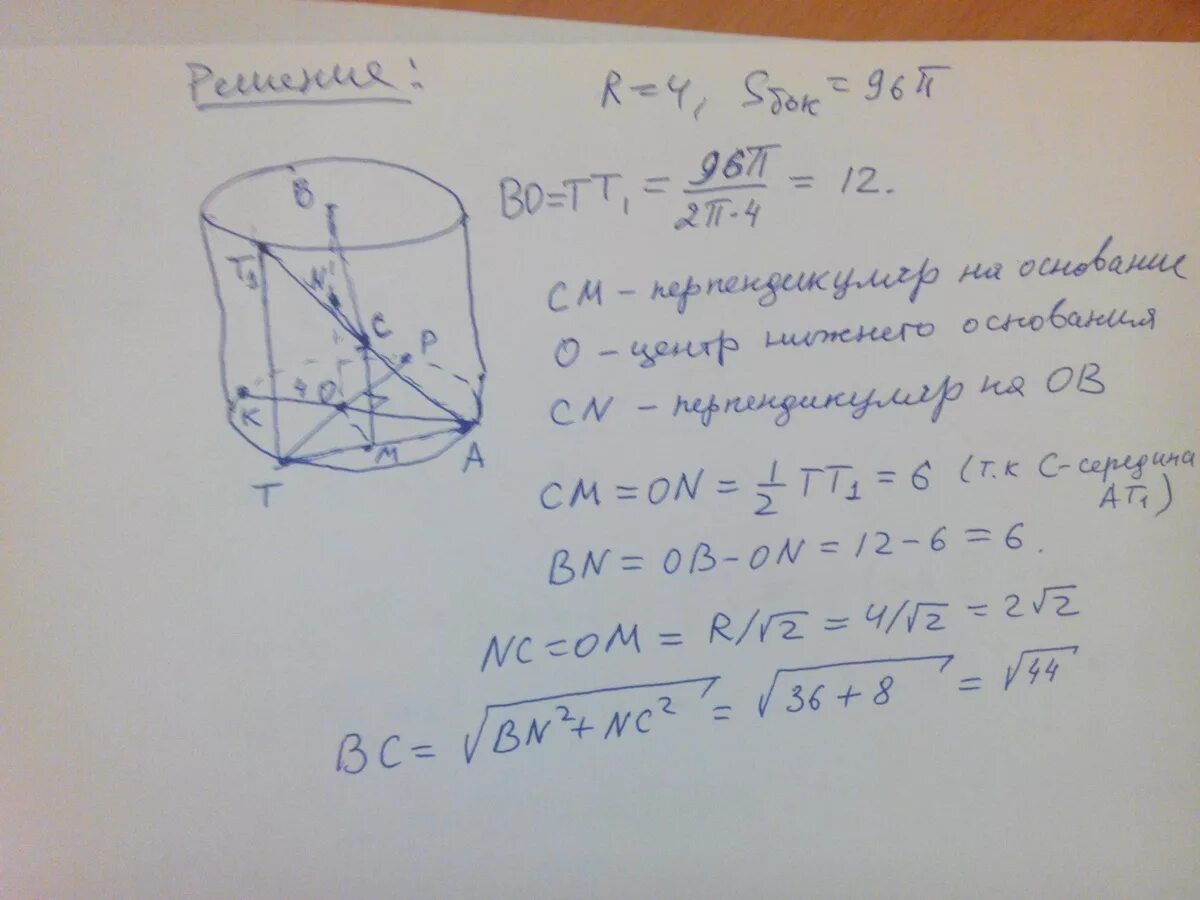 Решение:
R = 4, Sбок = 96π
BO = TT₁ = 96π / 2π·4 = 12.
CM – перпендикуляр на основание
O – центр нижнего основания
CN – перпендикуляр на OB
CM = ON = 1/2 TT₁ = 6 (т.к C – середина AT₁)
BN = OB – ON = 12 – 6 = 6.
NC = OM = R/√2 = 4/√2 = 2√2
BC = √BN² + NC² = √36 + 8 = √44
B
T₁
N
C
P
4
O
K
M
A
T